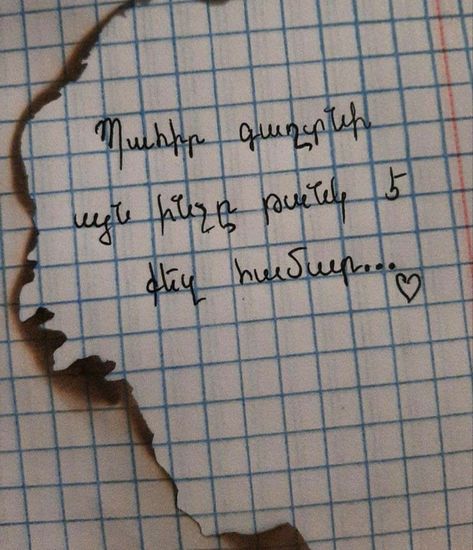 Պահիր գաղտնի
այն ինչը թանկ է
քեզ համար...♡